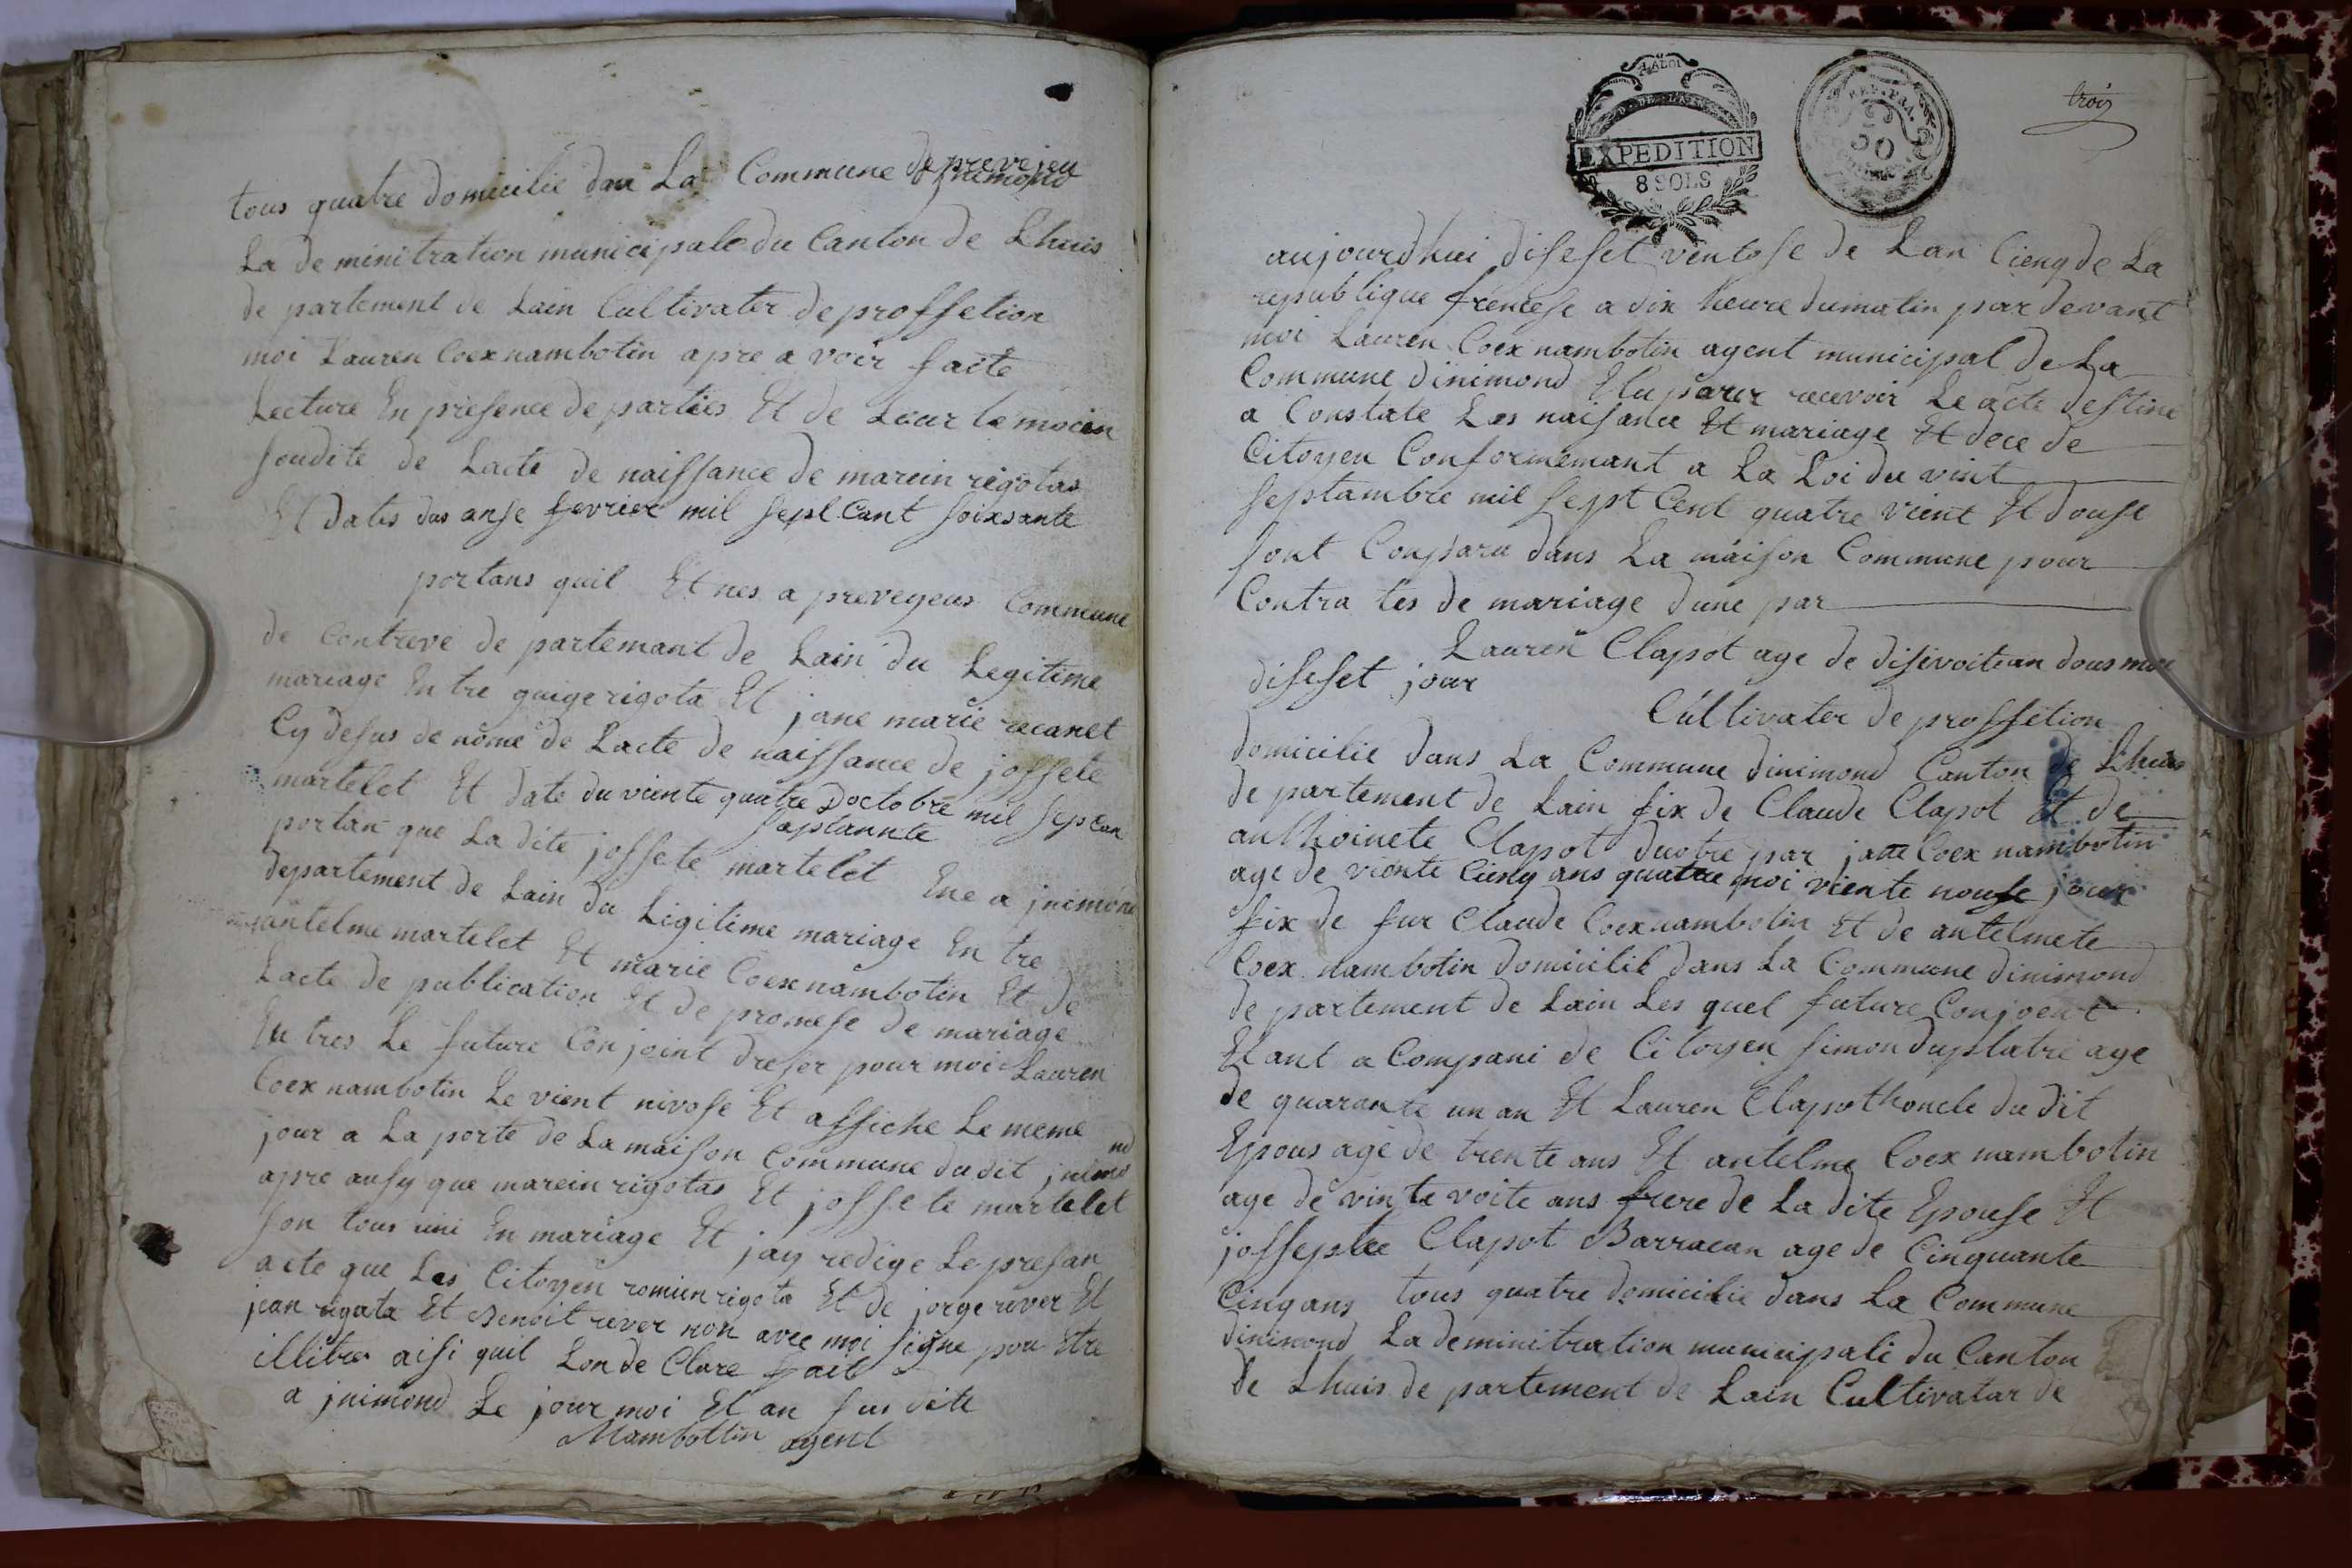 tous quatre domicilie dan La Commune de preveieu
La deminitration municipale du Canton de Lhuis
de partement de Lain Cultivater de proffetion
moi Lauren Coexnambotin apre a voir faite
Lecture En presence de parties Et de Leur temoien
soudite de Lacte de naissance de marein rigotas
Et Dates das anse fevrier mil sept Cant soixsante
portans quil Et nes a preveyeus Commune
de Contreve de partemant de Lain du Legitime
mariage Entre guige rigota Et jane marie recanet
Cy desus de nome de Lacte de naissance de joffete
martelet Et date du viente quatre Doctobre mil sepcan
saptannte
portan que La dite joffete martelet Ene a jnimond
departement de Lain du Legitime mariage En tre
antelme martelet Et marie Coexnambotin Et de
Lacte de publication Et de promese de mariage
Entres Le future Conjoint dreser pour moi Lauren
Coexnambotin Le vient nivose Et affiche Le meme
jour a La porte de La maison Commune du dit jnimond
apre ausy que marein rigotas Et joffete martelet
son tous uni En mariage Et jay redige Le presan
acte que Les Citoyen romien rigota Et de jorge rever Et
jean rigata Et Benoit rever non avec moi signe pour Etre
illitre aisi quil Lon de Clare fait
a jnimond Le jour moi Et an sus dite
Mambottin agent
LA LOI
EXPEDITION
8 SOLS
REP. FRA.
50
trois
aujourdhui diseset ventose de Lan Cienq de La
republique frencese a dix heure dumatin par devant
moi Lauren Coexnambotin agent municipal de La
Commune dinimond Elu pour recevoir Le acte destine
a Constate Les naisance Et mariage Et dece de
Citoyen Conformemant a La Loi du vint
septambre mil sept Cent quatre vient Et douse
sont Conparu dans La maison Commune pour
Contra tes de mariage dune par
Lauren Clapot age de disivoitean dous moi
diseset jour
Cultivater de proffetion
domicilie dans La Commune dinimond Canton de Lhuis
de partement de Lain fix de Claude Clapot Et de
anthoinete Clapot duotre par jane Coex nambotin
age de viente Cienq ans quatre moi viente nouse jour
fix de fur Claude Coexnambotin Et de antelmete
Coex nambotin domicilie dans La Commune dinimond
de partement de Lain Les quel future Conjoent
Etant a Compani de Citoyen simon duplatre age
de quarante un an Et Lauren Clapot honcle du dit
Epous age de trente ans Et antelme Coex nambotin
age de vinte voite ans frere de La dite Epouse Et
joffepte Clapot Barracan age de Cinquante
Cinq ans tous quatre domicilie dans La Commune
dinimond La deminitration municipali du Canton
de Lhuis de partement de Lain Cultivatar de